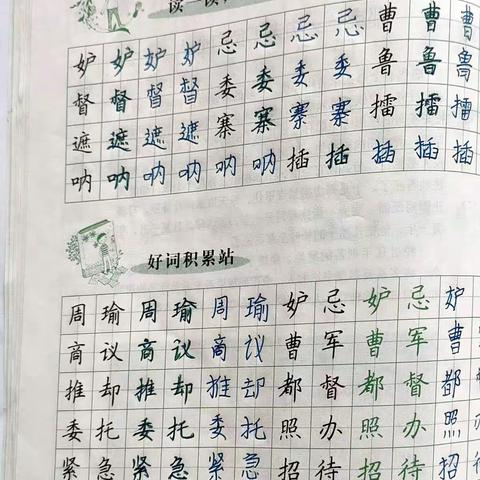 妒妒妒妒忌忌忌忌曹曹曹
督督督督委委委委鲁鲁鲁
遮遮遮遮寨寨寨寨擂擂擂
呐呐呐呐呐呐插插插插插
好词积累站
周瑜周瑜周瑜妒忌妒忌妒
商议商议商议曹军曹军曹
推却推却推却都督都督都
委托委托委托照办照办照
紧急紧急紧急招待招待招